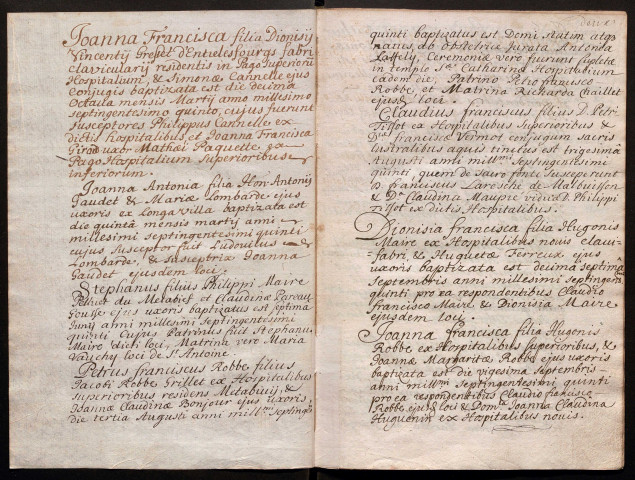 Joanna Francisca filia Dionisij
Vincentij Grefet d'Entrelesfourgs fabri
clavicularij residentis in Pago Superiorū
Hospitalium, & Simonæ Cannelle ejus
Conjugis baptizata est die decima
Octava mensis Martij anno millesimo
septingentesimo quinto, cujus fuerunt
Susceptores Philippus Cannelle ex
dictis hospitalibus et Joanna Francisca
Girod uxor Mathæi Paquette ex
Pago Hospitalium Superioribus
inferiorum.
Joanna Antonia filia Hon: Antonij
Gaudet & Mariæ Lombarde ejus
uxoris ex Longavilla baptizata est
die quintâ mensis martij anni
millesimi septingentesimi quinti
cujus Susceptor fuit Ludovicus
Lombarde, & Susceptrix Joanna
Gaudet ejusdem loci.
Stephanus filius Philippi Maire
du Metabief et Claudinæ
ejus uxoris baptizatus est septima
Junij anni millesimi septingentesimi
quinti Cujus Patrinus fuit Stephanus
Maire dicti loci, Matrina vero Maria
Vauchy loci de St. Antoine.
Petrus franciscus Robbe filius
Jacobi Robbe Grillet ex Hospitalibus
superioribus residens Metabuij &
Joannæ Claudinæ Bonjour ejus uxoris,
die tertia Augusti anni mill.mi septingē
quinti baptizatus est Domi statim atqz
natus, ab obstetrice Jurata Antonia
Laffely, Ceremoniæ vero fuerunt supletæ
in templo Stæ Catharinæ Hospitalium
eadem die, Patrino Petro francisco
Robbe, et Matrina Richarda Chaillet
ejusd. loci.
Claudius franciscus filius D. Petri
Tissot ex Hospitalibus Superioribus &
franciscæ Vernet ejusque sacris
lustralibus aquis tinctus est trigesimâ
Augusti anni mill.mi septingentesimi
quinti, quem de sacro fonte susceperunt
D. franciscus Laresche de Malbuisson
& Da. Claudina Maupré vidua D. Philippi
Tissot ex dictis Hospitalibus.
Dionisia francisca filia Hugonis
Maire ex Hospitalibus novis clavi-
fabri, & Huguetæ Ferreux ejus
uxoris baptizata est decimâ septimâ
Septembris anni millesimi septingen.mi
quinti pro ea respondentibus Claudio
francisco Maire & Dionisia Maire
ejusdem loci.
Joanna francisca filia Hugonis
Robbe ex Hospitalibus superioribus, &
Joannæ Margaritæ Robbe ejus uxoris
baptizata est die vigesima Septembris
anni mill.mi septingentesimi quinti
pro ea respondentibus Claudio francisco
Robbe ejusd. loci & Dom.a Joanna Claudina
Huguenin ex Hospitalibus novis.